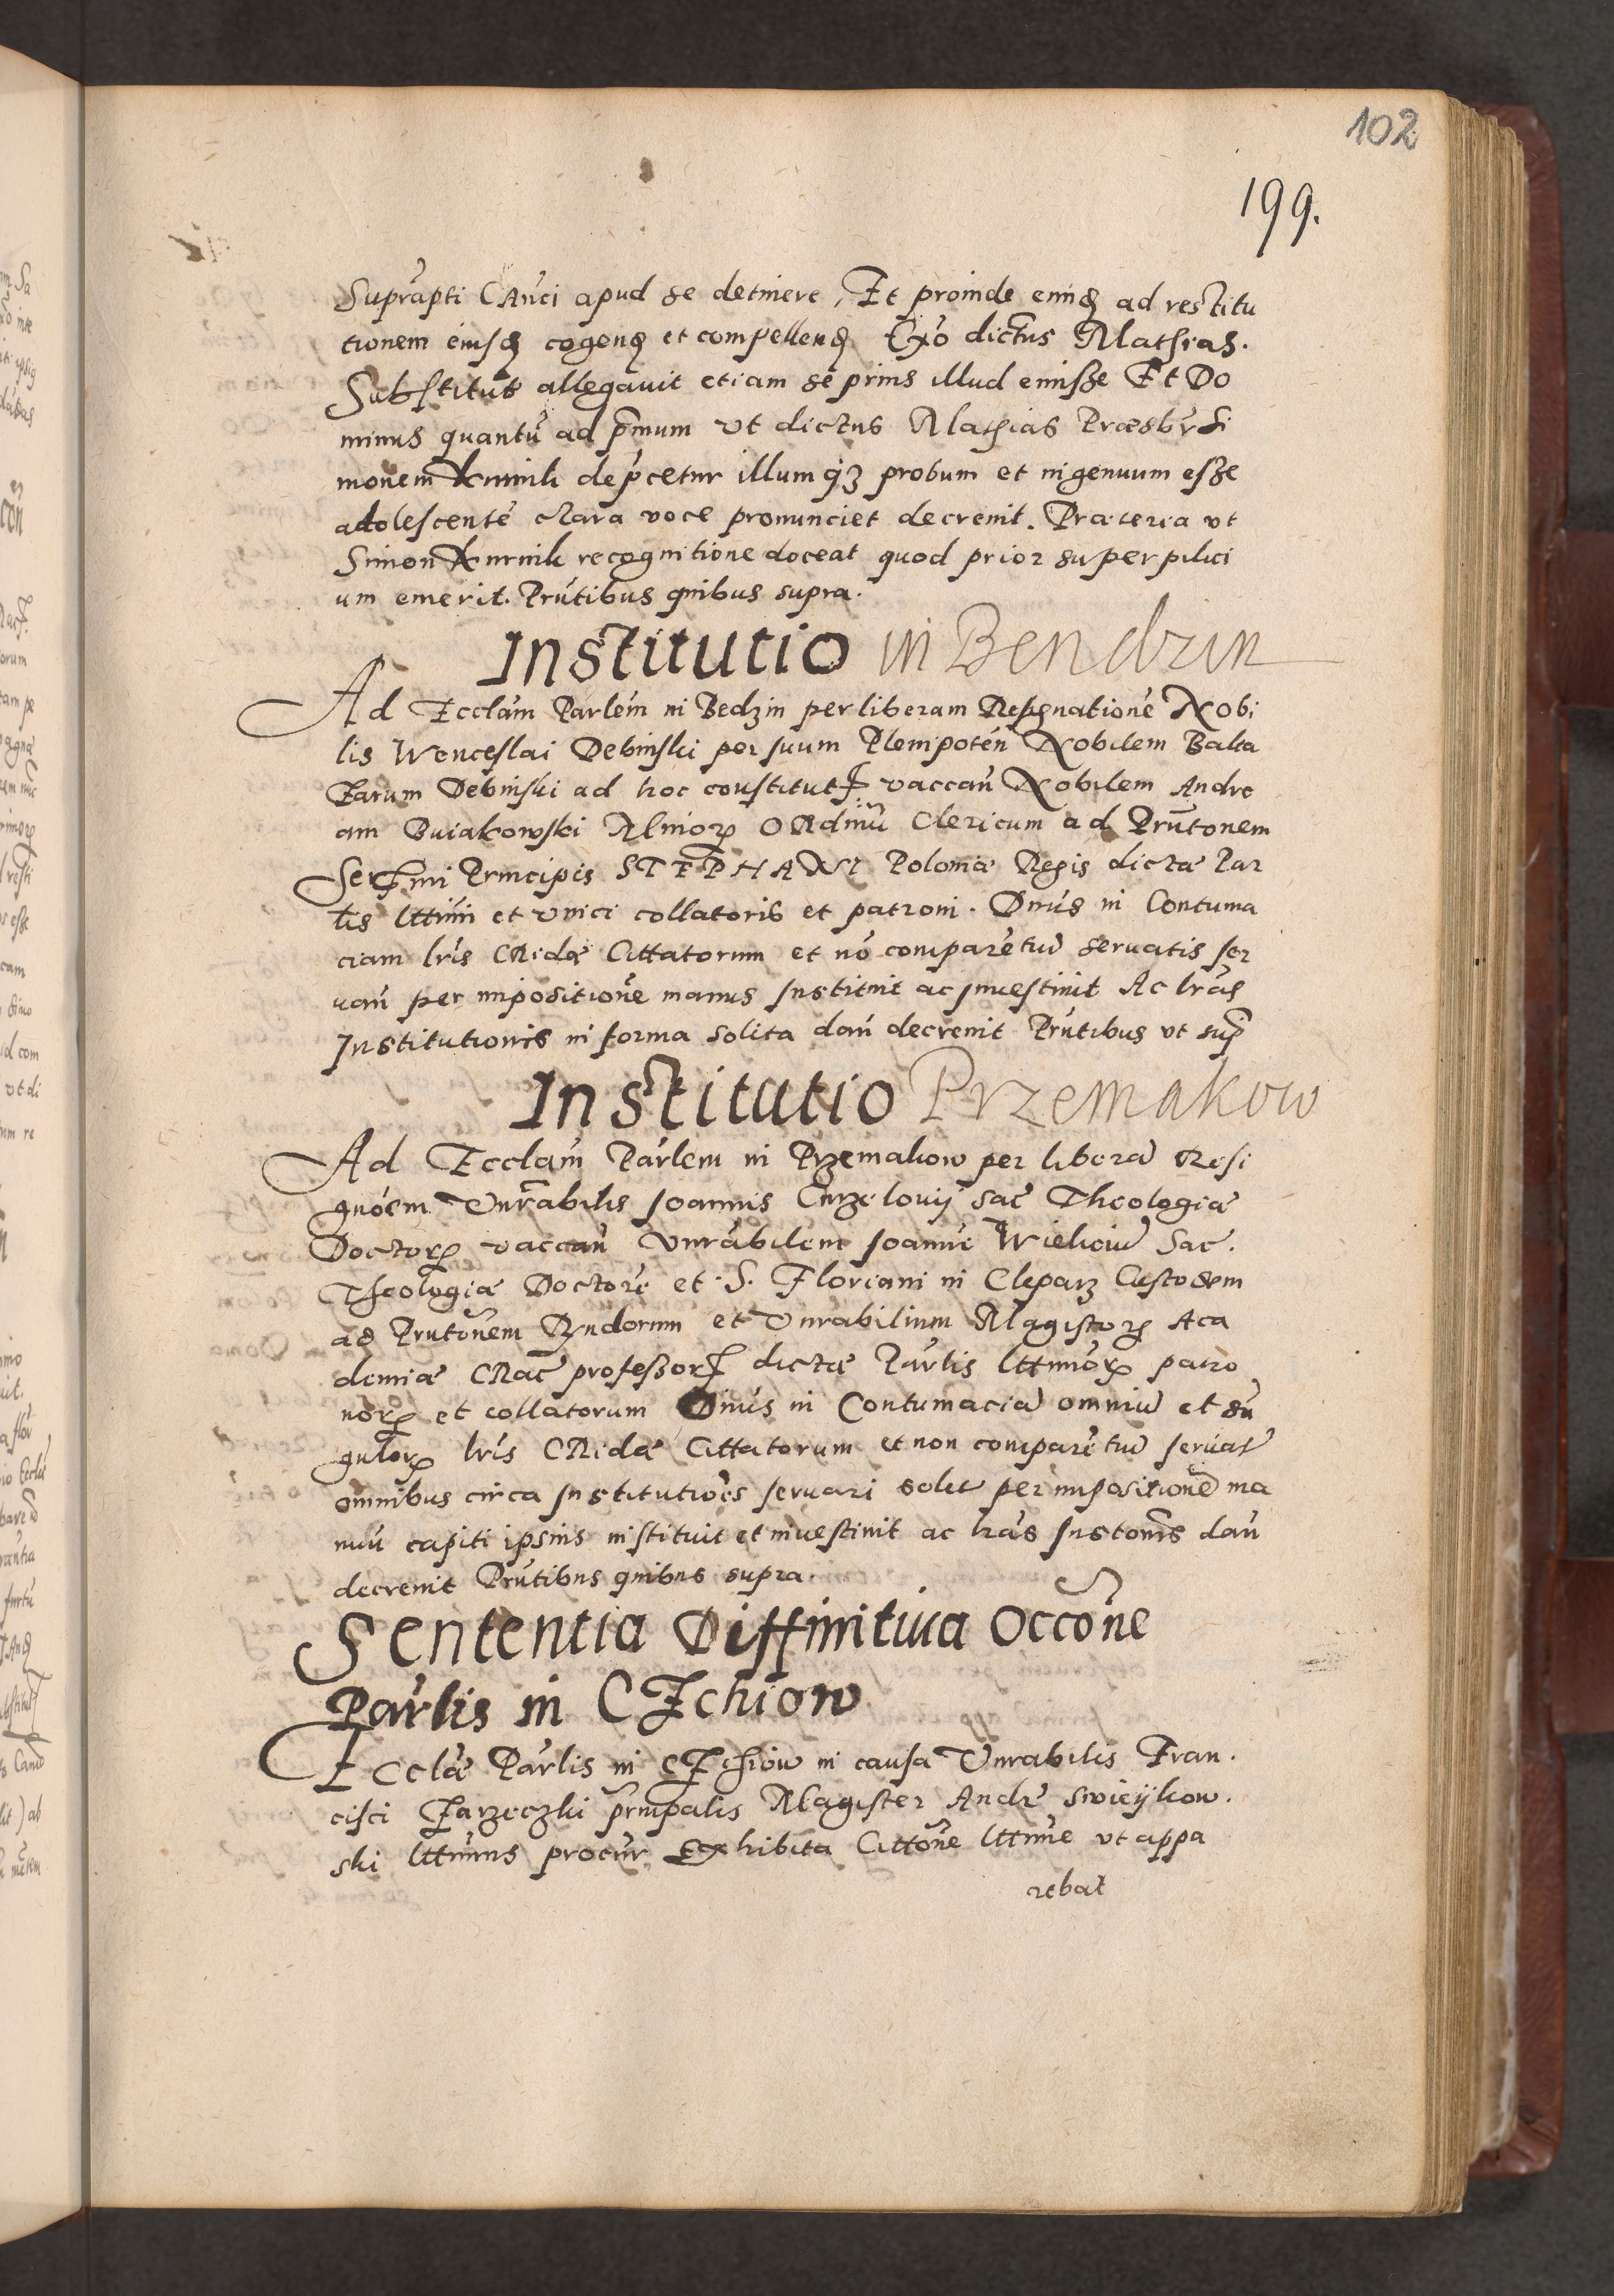 102
199.
Suprapti CAuci apud se detinere, Et proinde eund ad restitu
tionem eiusd cogend et compellend Exo dictus Mathias.
Substitutus allegavit etiam se prius illud emisse Et Do
minus quantū ad pmum vt dictus Mathias Præsbr Si
monem depcetur illumqз probum et ingenuum esse
adolescentē clara voce pronunciet decrevit. Præterea vt
Simon recognitione doceat quod prior super
um emerit. Prntibus quibus supra.
Institutio in Bendzin
Ad Ecclam Parlem in Bedzin per liberam Resignationē Nobi
lis Wenceslai Debinski per suum Plenipoten Nobilem Balta
zarum Debinski ad hoc constitut vaccan Nobilem Andre
am Buiakowski Minor ORdinū Clericum ad Prntonem
Sermi Principis STEPHANI Poloniæ Regis dictæ Par
lis lttimi et vnici collatoris et patroni. Dnus in Contuma
ciam lris CRidæ Cittatorum et nō comparētiū servatis ser
van per impositionē manus Instituit ac Investiuit Ac lras
Institutionis in forma solita dan decrevit Prntibus vt sup
Institutio Przemakow
Ad Ecclam Parlem in Przemakow per liberā Resi
gnōem Vnrabilis Joannis Curzelovij Sac Theologiæ
Doctor vaccan Vnrabilem Joannē Wielicium Sac.
Theologiæ Doctorē et S. Floriani in Cleparz Custodem
ad Prntonem Rndorum et Vnrabilium Magistor Aca
demiæ CRac professor dictæ Parlis lttimor patro
nor et collatorum Dnus in Contumaciā omniū et sin
gulor lris CRidæ Cittatorum et non comparētiū servat
omnibus circa Institutiōes servari solit per impositionē ma
nuū capiti ipsius instituit et investiuit ac lras Instonis dan
decrevit Prntibus quibus supra.
Sententia Diffinitiua Occōne
Parlis in CZchiow
Ecclæ Parlis in CZchiow in causa Vnrabilis Fran.
cisci Zarzeczki prnipalis Magister Andr Swieijkow.
ski lttimus procur Exhibita Cittōne lttime vt appa
rebat